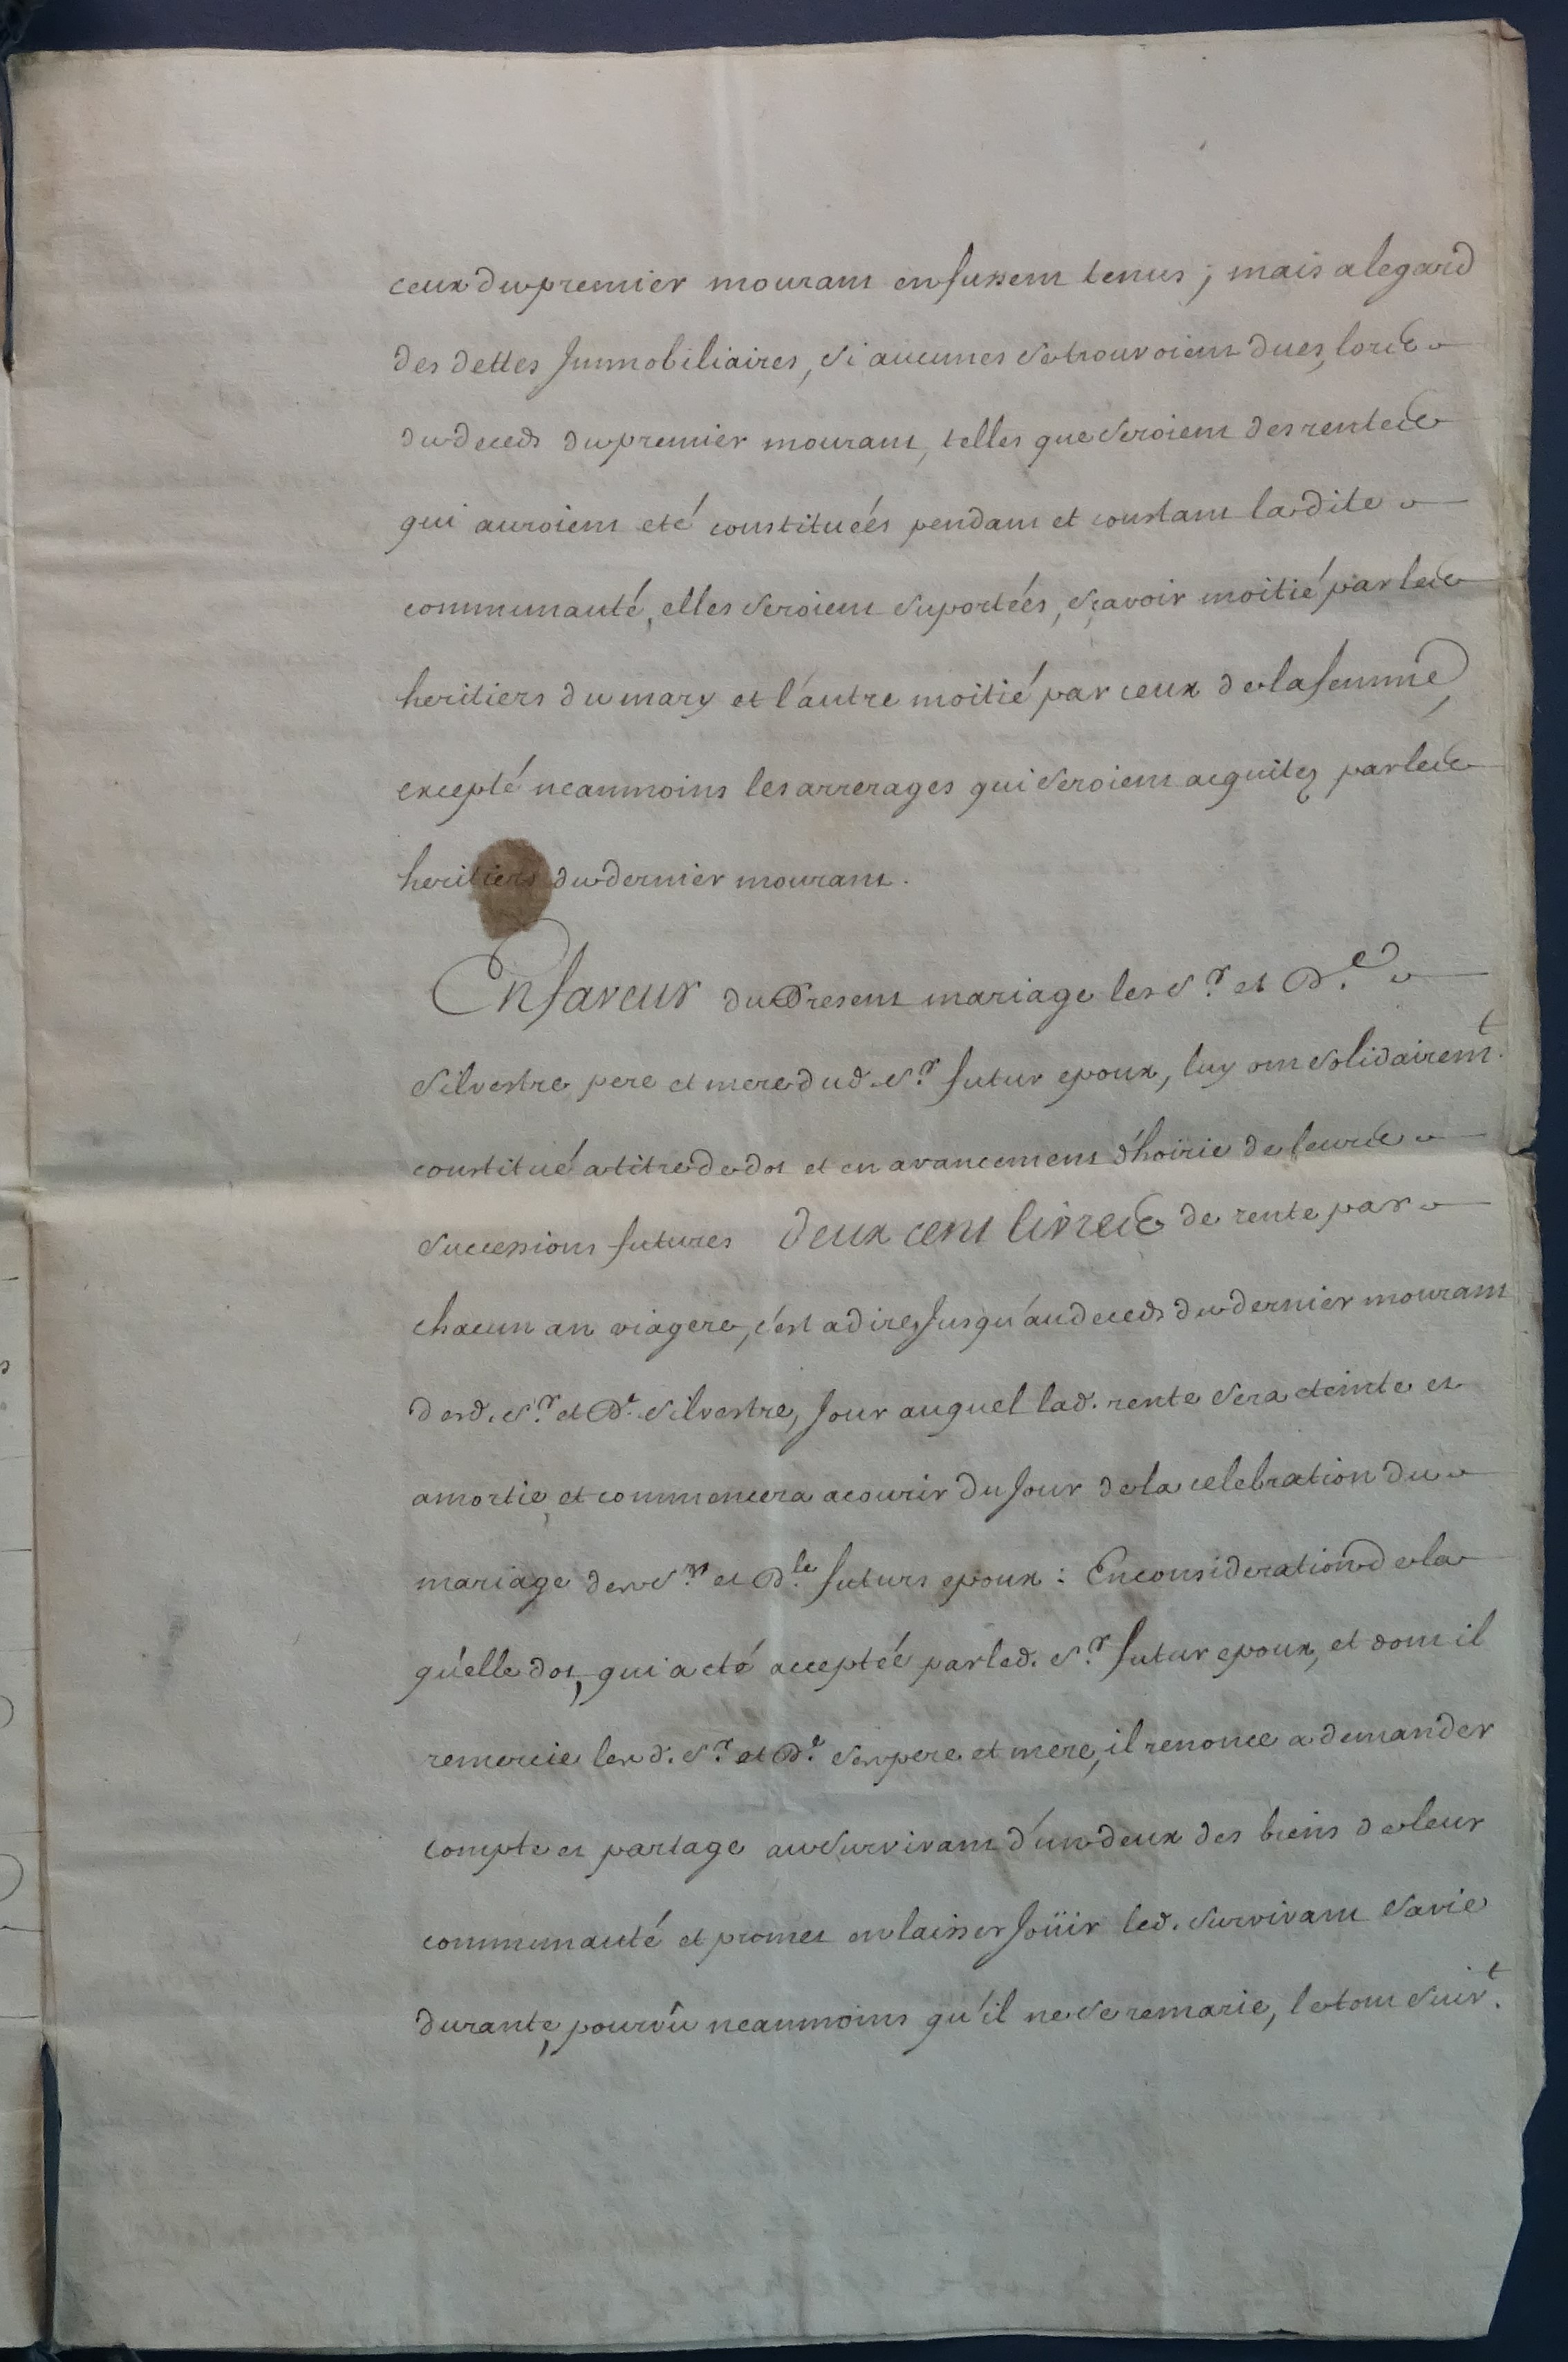 ceux du premier mourant en fussent tenus ; mais a legard
des dettes Immobiliaires, si aucunes se trouvoient dues, lors
du deceds du premier mourant, telles que seroient des rentes
qui auroient eté constituéés pendant et constant la dite
communauté, elles seroient suportéés, sçavoir moitié par les
heritiers du mary et l'autre moitié par ceux de la femme,
excepté neanmoins les arrerages qui seroient acquitez par les
heritiers du dernier mourant.
En faveur du Present mariage les S.r et D.e
Silvestre pere et mere dud. S.r futur epoux, luy ont solidairem.t
constitué a titre de dot et en avancement d'hoirie de leurs
successions futures deux cent livres de rente par
chacun an viagere, c'est a dire, Jusqu'au deceds du dernier mourant
desd. S.r et D.e Silvestre, Jour auquel lad. rente sera eteinte et
amortie, et commencera a courir du Jour de la celebration du
mariage des S.rs et D.le futurs epoux : En consideration de la
qu'elle dot, qui a eté acceptéé par led. S.r futur epoux, et dont il
remercie lesd. S.r et D.e ses pere et mere, il renonce a demander
compte et partage au survivant d'un deux des biens de leur
communauté et promet en laisser Joüir led. survivant sa vie
durante, pourvû neanmoins qu'il ne se remarie, le tout suiv.t